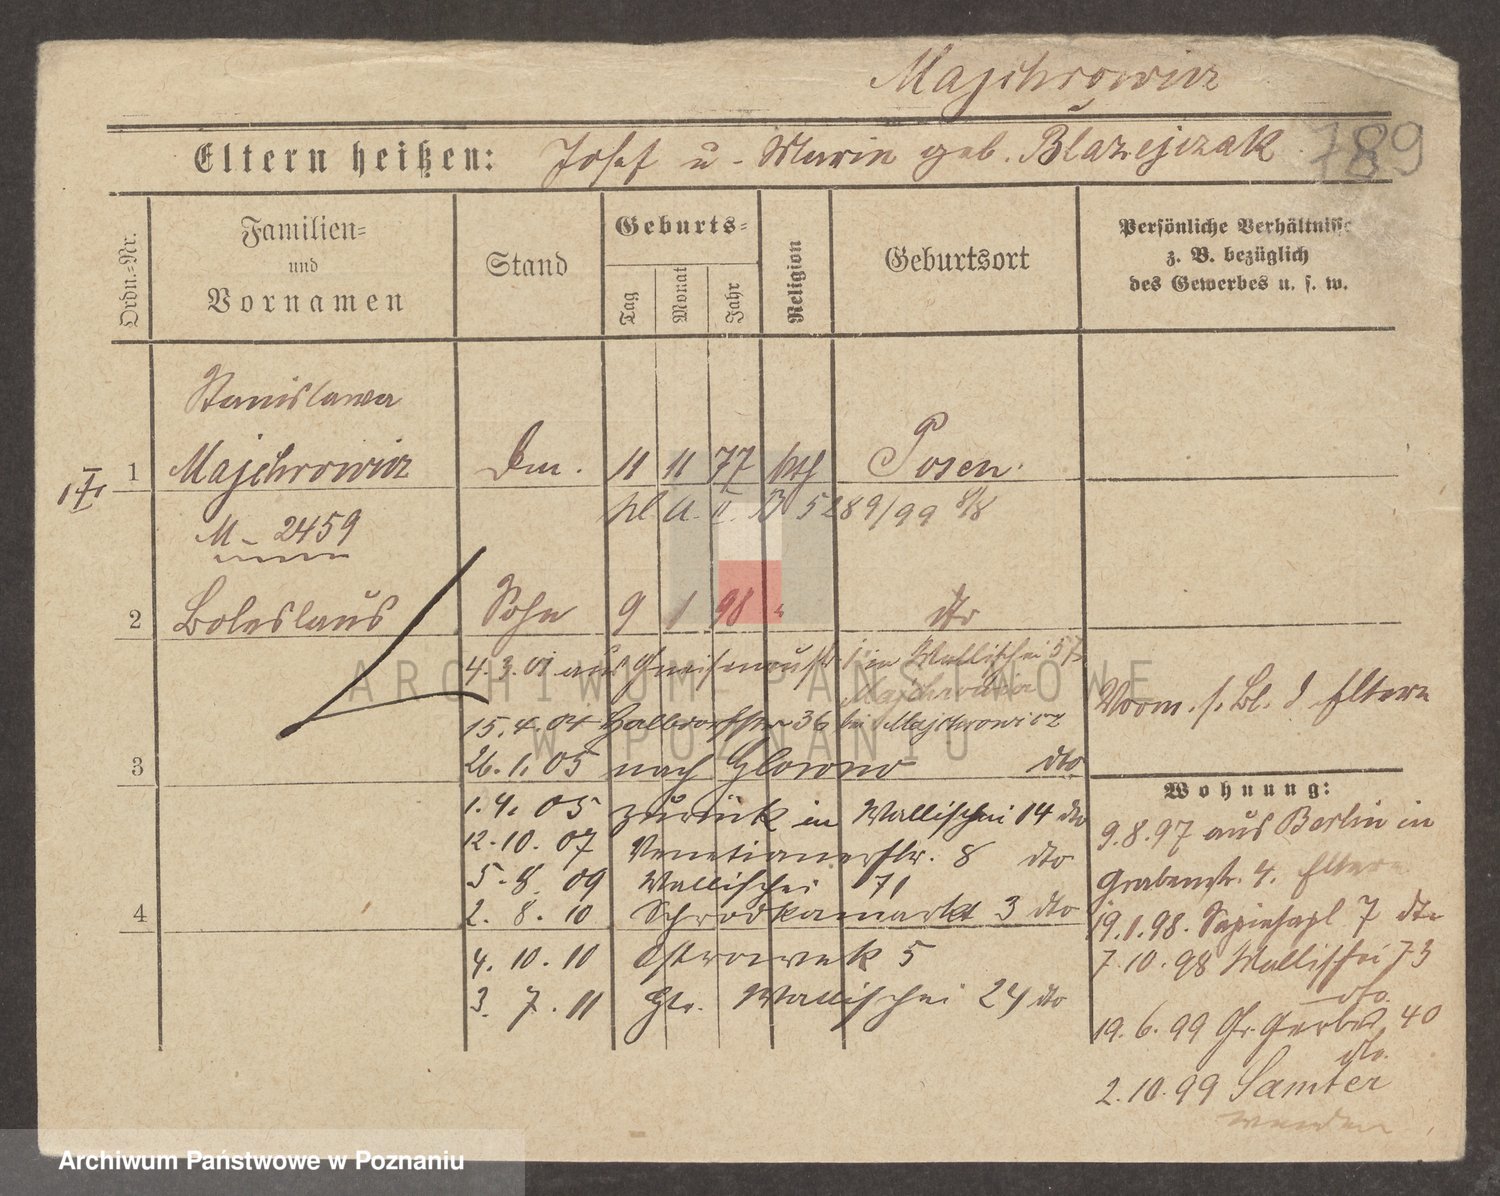 Majchrowicz
Eltern heißen: Josef u. Marie geb. Błazejczak 789
Ordn.-Nr.
Familien-
und
Vornamen
Stand
Geburts-
Tag
Monat
Jahr
Religion
Geburtsort
Persönliche Verhältnisse
z. B. bezüglich
des Gewerbes u. s. w.
Stanislawa
1 Majchrowicz 11 11 77 kth Posen
M - 2459
5289/99 8/8
2 Boleslaus Sohn 9 1 98 " dto
4.3.01 aus Gneisenaustr 1 in Wallischei 57
Majchrowicz
15.4.04 Halbdorfstr 36 bei Majchrowicz
3 26.1.05 nach Glowno dto
1.4.05 zurück in Wallischei 14 dto
12.10.07 Venetianerstr. 8 dto
5.8.09 Wallischei 71
4 2.8.10 Schrodkamarkt 3 dto
4.10.10 Ostrowek 5
3.7.11 Wallischei 24 dto
Vorm. s. Bl. d. Eltern
Wohnung:
9.8.97 aus Berlin in
Grabenstr. 4. Eltern
19.1.98. Sapiehapl 7 dto
7.10.98 Wallischei 73
dto.
19.6.99 Gr. Gerberstr 40
dto.
2.10.99 Samter
ARCHIWUM PAŃSTWOWE
W POZNANIU
Archiwum Państwowe w Poznaniu